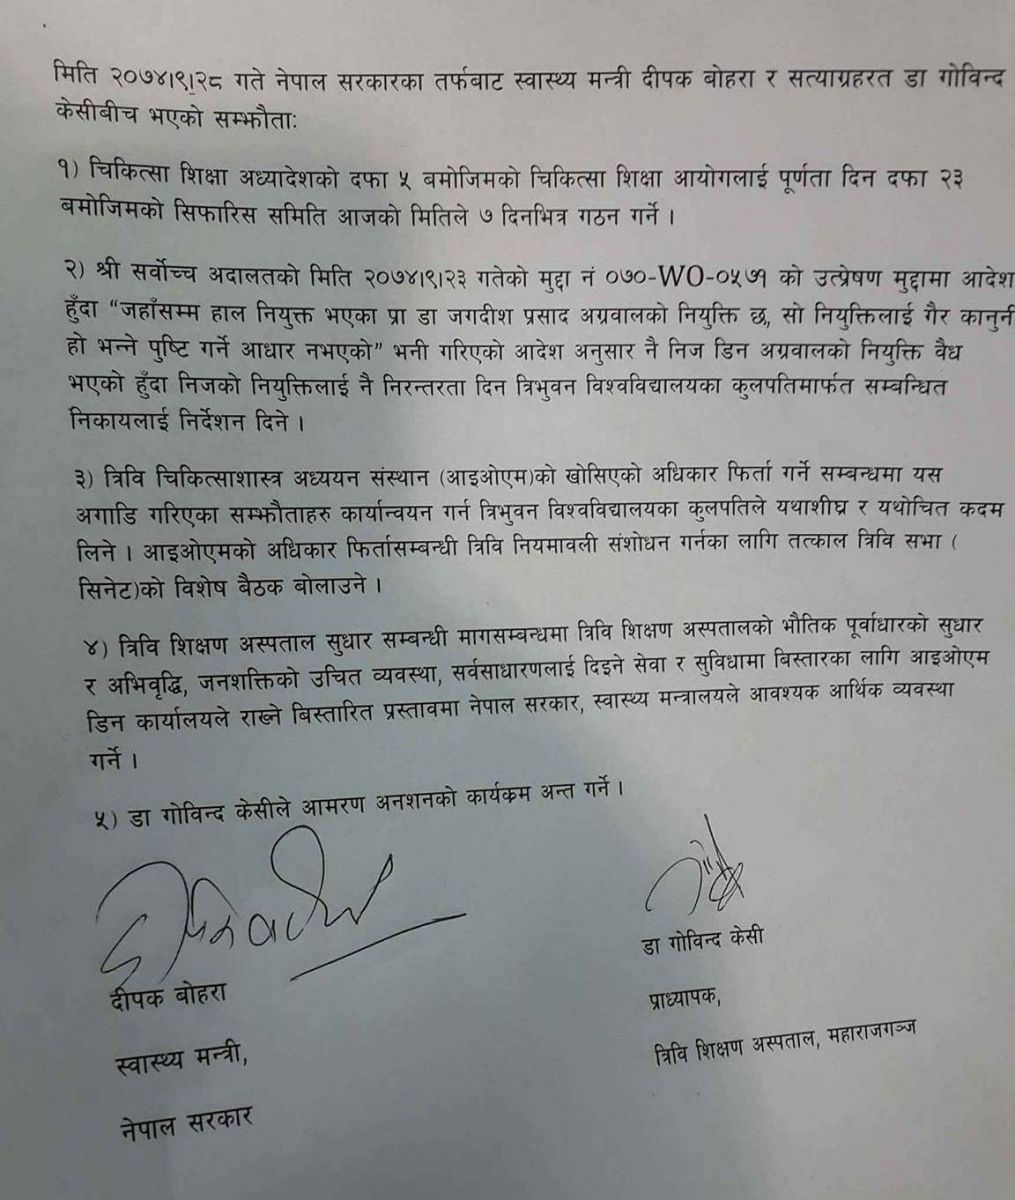 मिति २०७४।९।२८ गते नेपाल सरकारका तर्फबाट स्वास्थ्य मन्त्री दीपक बोहरा र सत्याग्रहरत डा गोविन्द
केसीबीच भएको सम्झौताः
१) चिकित्सा शिक्षा अध्यादेशको दफा ५ बमोजिमको चिकित्सा शिक्षा आयोगलाई पूर्णता दिन दफा २३
बमोजिमको सिफारिस समिति आजको मितिले ७ दिनभित्र गठन गर्ने ।
२) श्री सर्वोच्च अदालतको मिति २०७४।९।२३ गतेको मुद्दा नं ०७०-WO-०५७१ को उत्प्रेषण मुद्दामा आदेश
हुँदा “जहाँसम्म हाल नियुक्त भएका प्रा डा जगदीश प्रसाद अग्रवालको नियुक्ति छ, सो नियुक्तिलाई गैर कानुनी
हो भन्ने पुष्टि गर्ने आधार नभएको” भनी गरिएको आदेश अनुसार नै निज डिन अग्रवालको नियुक्ति वैध
भएको हुँदा निजको नियुक्तिलाई नै निरन्तरता दिन त्रिभुवन विश्वविद्यालयका कुलपतिमार्फत सम्बन्धित
निकायलाई निर्देशन दिने ।
३) त्रिवि चिकित्साशास्त्र अध्ययन संस्थान (आइओएम)को खोसिएको अधिकार फिर्ता गर्ने सम्बन्धमा यस
अगाडि गरिएका सम्झौताहरु कार्यान्वयन गर्न त्रिभुवन विश्वविद्यालयका कुलपतिले यथाशीघ्र र यथोचित कदम
लिने । आइओएमको अधिकार फिर्तासम्बन्धी त्रिवि नियमावली संशोधन गर्नका लागि तत्काल त्रिवि सभा (
सिनेट)को विशेष बैठक बोलाउने ।
४) त्रिवि शिक्षण अस्पताल सुधार सम्बन्धी मागसम्बन्धमा त्रिवि शिक्षण अस्पतालको भौतिक पूर्वाधारको सुधार
र अभिवृद्धि, जनशक्तिको उचित व्यवस्था, सर्वसाधारणलाई दिइने सेवा र सुविधामा बिस्तारका लागि आइओएम
डिन कार्यालयले राख्ने बिस्तारित प्रस्तावमा नेपाल सरकार, स्वास्थ्य मन्त्रालयले आवश्यक आर्थिक व्यवस्था
गर्ने ।
५) डा गोविन्द केसीले आमरण अनशनको कार्यक्रम अन्त गर्ने ।
डा गोविन्द केसी
दीपक बोहरा
प्राध्यापक,
स्वास्थ्य मन्त्री,
त्रिवि शिक्षण अस्पताल, महाराजगञ्ज
नेपाल सरकार